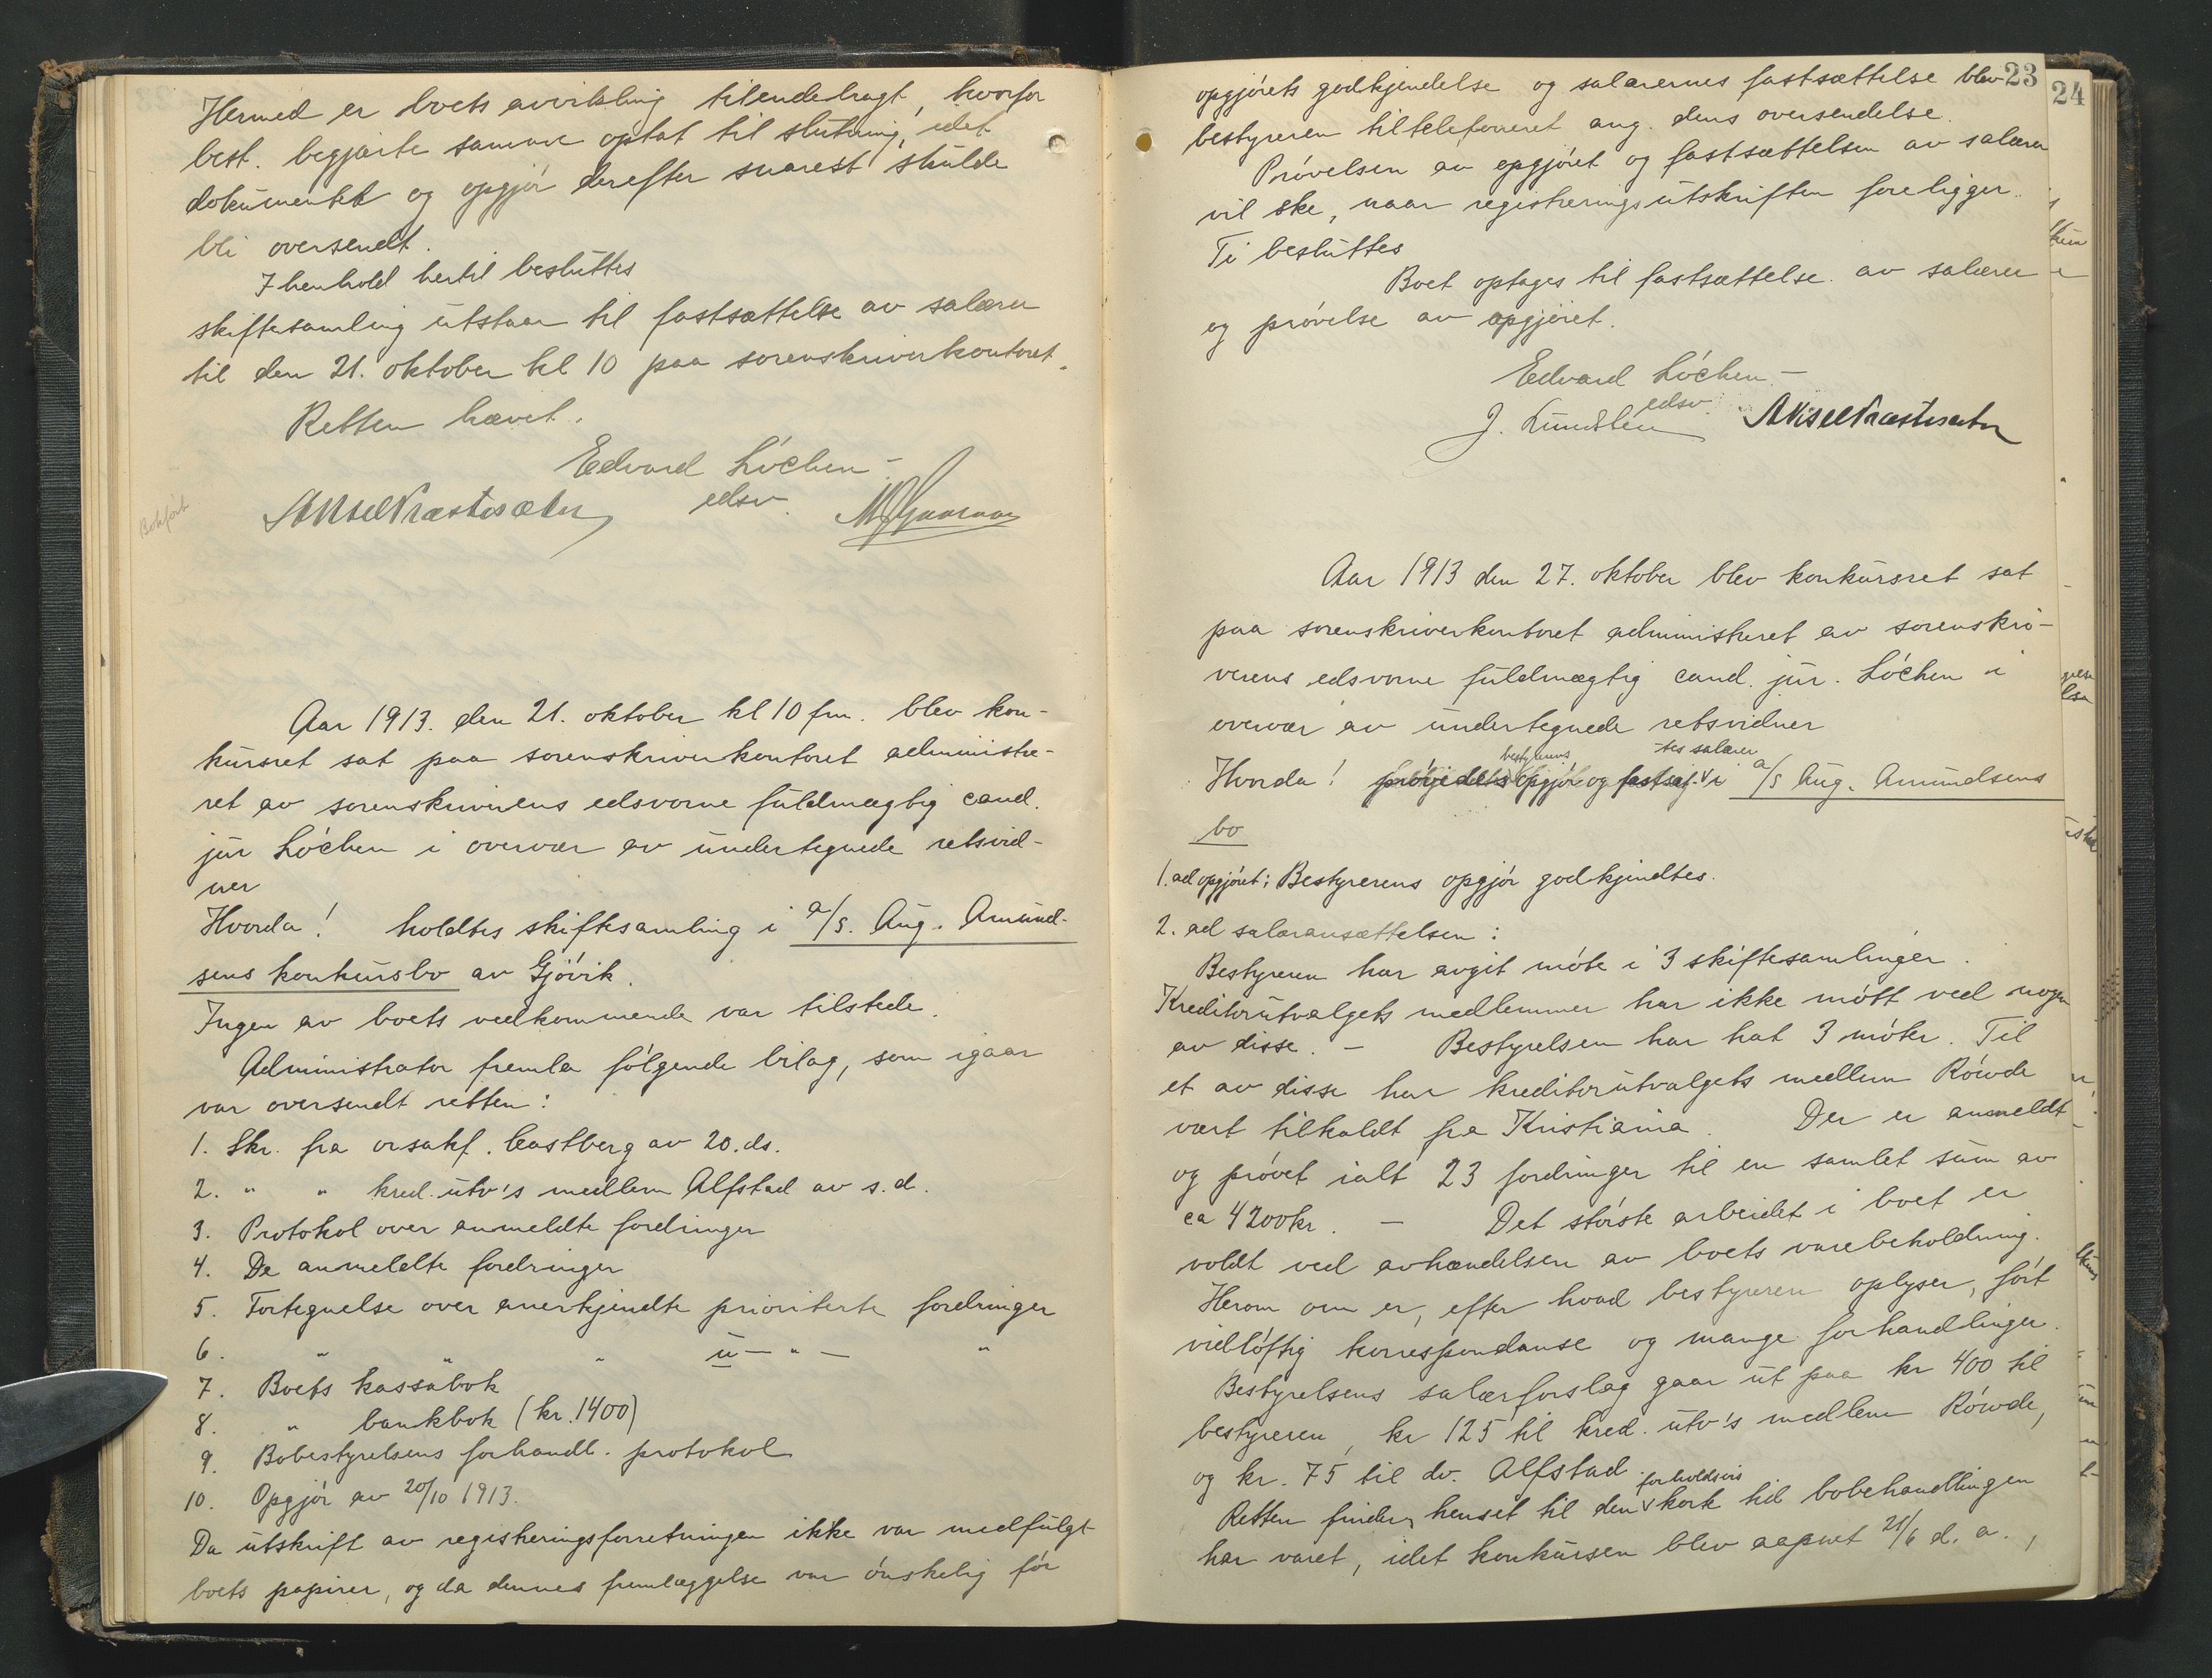 Hermed er boets avvikling tilendebragt, hvorfor
best. begjærte samme optat til slutning, idet
dokumentet og opgjør derefter snarest skulde
bli oversendt.
I henhold hertil besluttes
skiftesamling utstaar til fastsættelse av salærer
til den 21. oktober kl 10 paa sorenskriverkontoret.
Retten hævet.
Edvard Löchen
edsv.
Aksel Præstesæter
Bokført
Aar 1913. den 21. oktober kl 10 fm. blev kon-
kursret sat paa sorenskriverkontoret administre-
ret av sorenskriverens edsvorne fuldmægtig cand.
jur Löchen i overvær av undertegnede retsvid-
ner
Hvorda! holdtes skiftesamling i a/s. Aug. Amund-
sens konkursbo av Gjövik.
Ingen av boets vedkommende var tilstede.
Administrator fremla følgende bilag, som igaar
var oversendt retten:
1. Skr. fra orsakf. Castberg av 20. ds.
2. " " kred. utv's medlem Alfstad av s. d.
3. Protokol over anmeldte fordringer
4. De anmeldte fordringer
5. Fortegnelse over anerkjendte prioriterte fordringer
6. " " " u — " — "
7. Boets kassabok
8. " bankbok (kr. 1400)
9. Bobestyrelsens forhandl. protokol
10. Opgjör av 20/10 1913.
Da utskrift av registreringsforretningen ikke var medfulgt
boets papirer, og da dennes fremlæggelse var ónskelig fór
23
24
opgjörets godkjendelse og salærernes fastsættelse blev
bestyreren tiltelefoneret ang. dens oversendelse.
Prövelsen av opgjöret og fastsættelsen av salærer
vil ske, naar registreringsutskriften foreligger.
Ti besluttes
Boet optages til fastsættelse av salærer
og prövelse av opgjöret.
Edvard Löchen
edsv.
J. Lundsten Aksel Præstesæter
Aar 1913 den 27. oktober blev konkursret sat
paa sorenskriverkontoret administreret av sorenskri-
verens edsvorne fuldmægtig cand. jur. Löchen i
overvær av undertegnede retsvidner
bestyrerens tes salærer
Hvorda! prövedes opgjör og fastsat i a/s Aug. Amundsens
bo
1. ad opgjöret: Bestyrerens opgjör godkjendtes.
2. ad salæransættelsen:
Bestyreren har avgit möte i 3 skiftesamlinger.
Kreditorutvalgets medlemmer har ikke mött ved nogen
av disse. — Bestyrelsen har hat 3 möter. Til
et av disse har kreditorutvalgets medlem Röwde
vært tilkaldt fra Kristiania. Der er anmeldt
og prövet ialt 23 fordringer til en samlet sum av
ca 4200 kr. — Det störste arbeidet i boet er
voldt ved avhændelsen av boets varebeholdning.
Herom om er, efter hvad bestyreren oplyser, fört
vidlöftig korrespondanse og mange forhandlinger.
Bestyrelsens salærforslag gaar ut paa kr 400 til
bestyreren, kr 125 til kred. utv's medlem Röwde,
og kr. 75 til do. Alfstad.
forholdsvis
Retten finder, henset til den korte tid bobehandlingen
har varet, idet konkursen blev aapnet 21/6 d. a.,